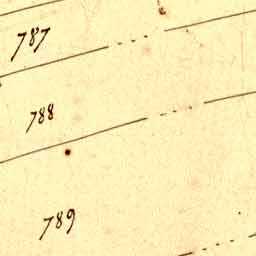 787
788
789